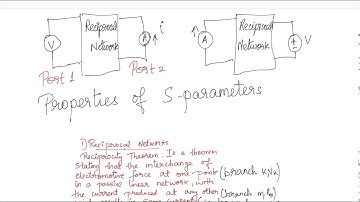 Reciprocal
Network
V
A
i
Port 1
Port 2
A
Reciprocal
Network
V
Properties of S-parameters
1) Reciprocal Networks
Reciprocity Theorem. Is a theorem
stating that the interchange of
electromotive force at one point (branch K, Vk)
in a passive linear network, with
the current produced at any other (branch m,